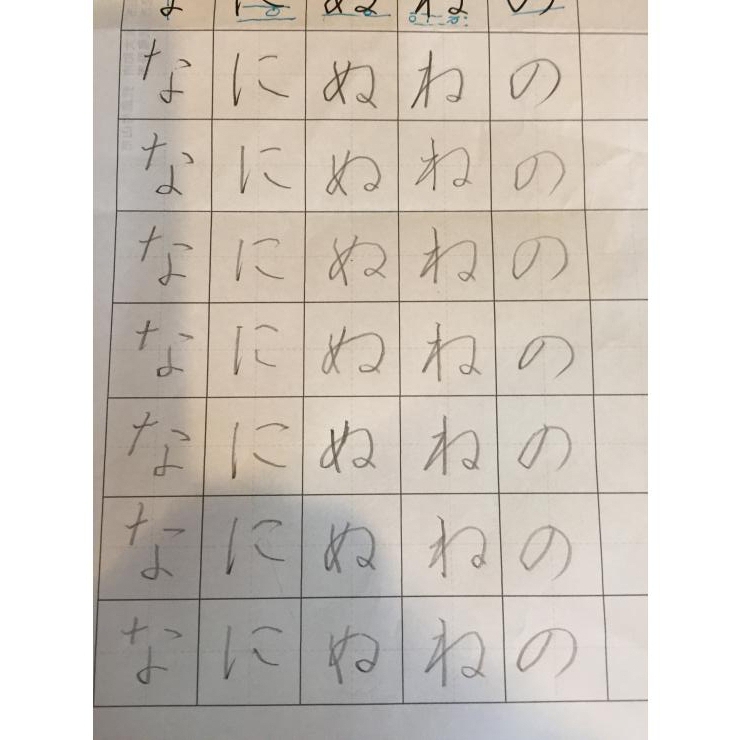 なにぬねの
なにぬねの
なにぬねの
なにぬねの
なにぬねの
なにぬねの
なにぬねの
なにぬねの